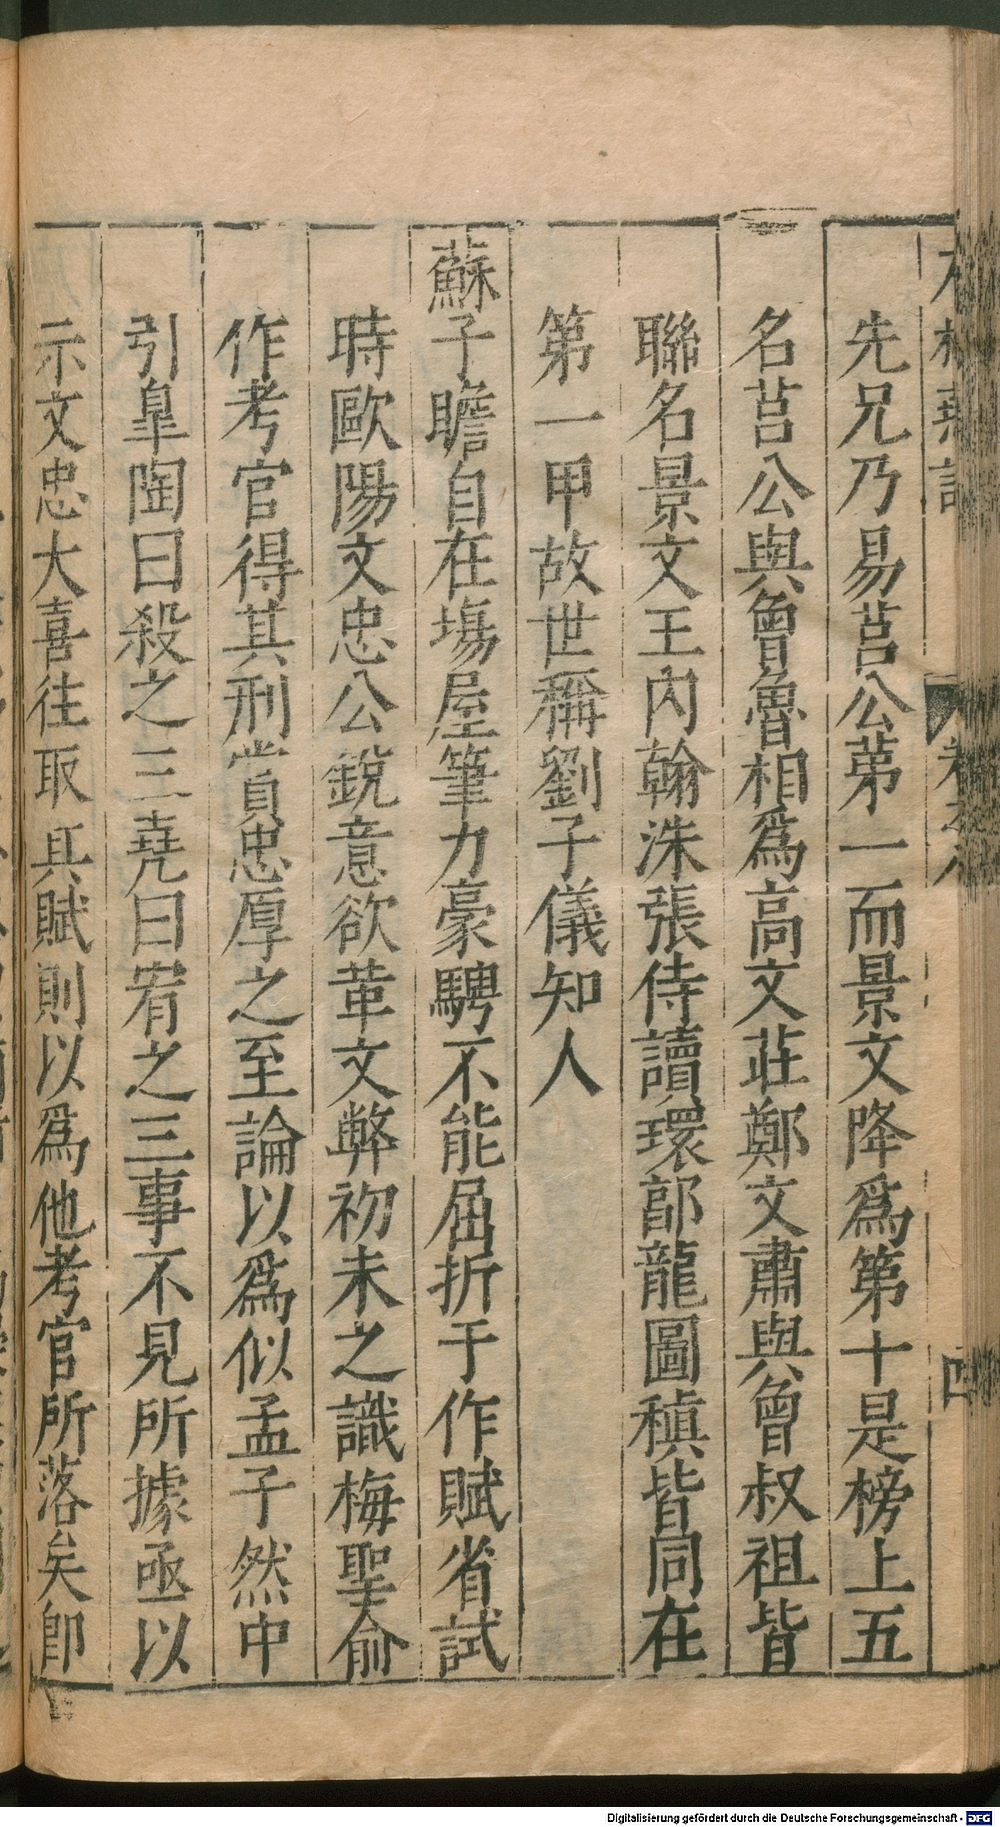 先兄乃易莒公苐一而景文降爲第十是榜上五
名莒公與曾魯相爲高文莊鄭文肅與曾叔祖皆
聯名景文王內翰洙張侍讀環郎龍圖稹皆同在
第一甲故世稱劉子儀知人
蘇子瞻自在塲屋筆力豪騁不能屈折于作賦省試
時歐陽文忠公銳意欲革文弊初未之識梅聖俞
作考官得其刑賞忠厚之至論以爲似孟子然中
引皐陶曰殺之三堯曰宥之三事不見所據亟以
示文忠大喜往取其賦則以爲他考官所落矣卽
Digitalisierung gefördert durch die Deutsche Forschungsgemeinschaft - DFG